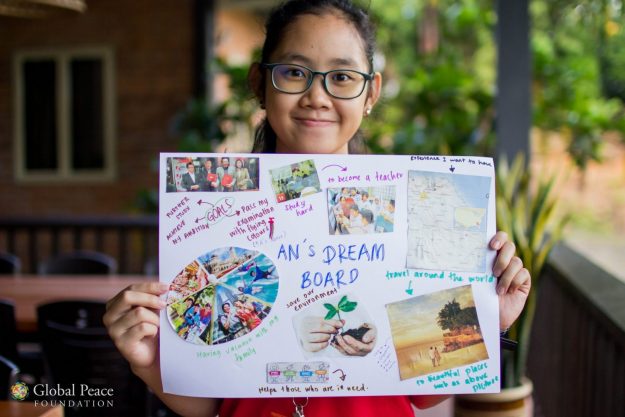 Experience I want to have
to become a teacher
FURTHER
STUDY
ACHIEVE
MY AMBITION
GOALS
Pass my
examination
with flying
colour
Study
hard
AN'S DREAM
BOARD
travel around the world
save our
environment
Having vacation with my
family
to beautiful places
such as above
picture
Helps those who are in need.
Global Peace
FOUNDATION